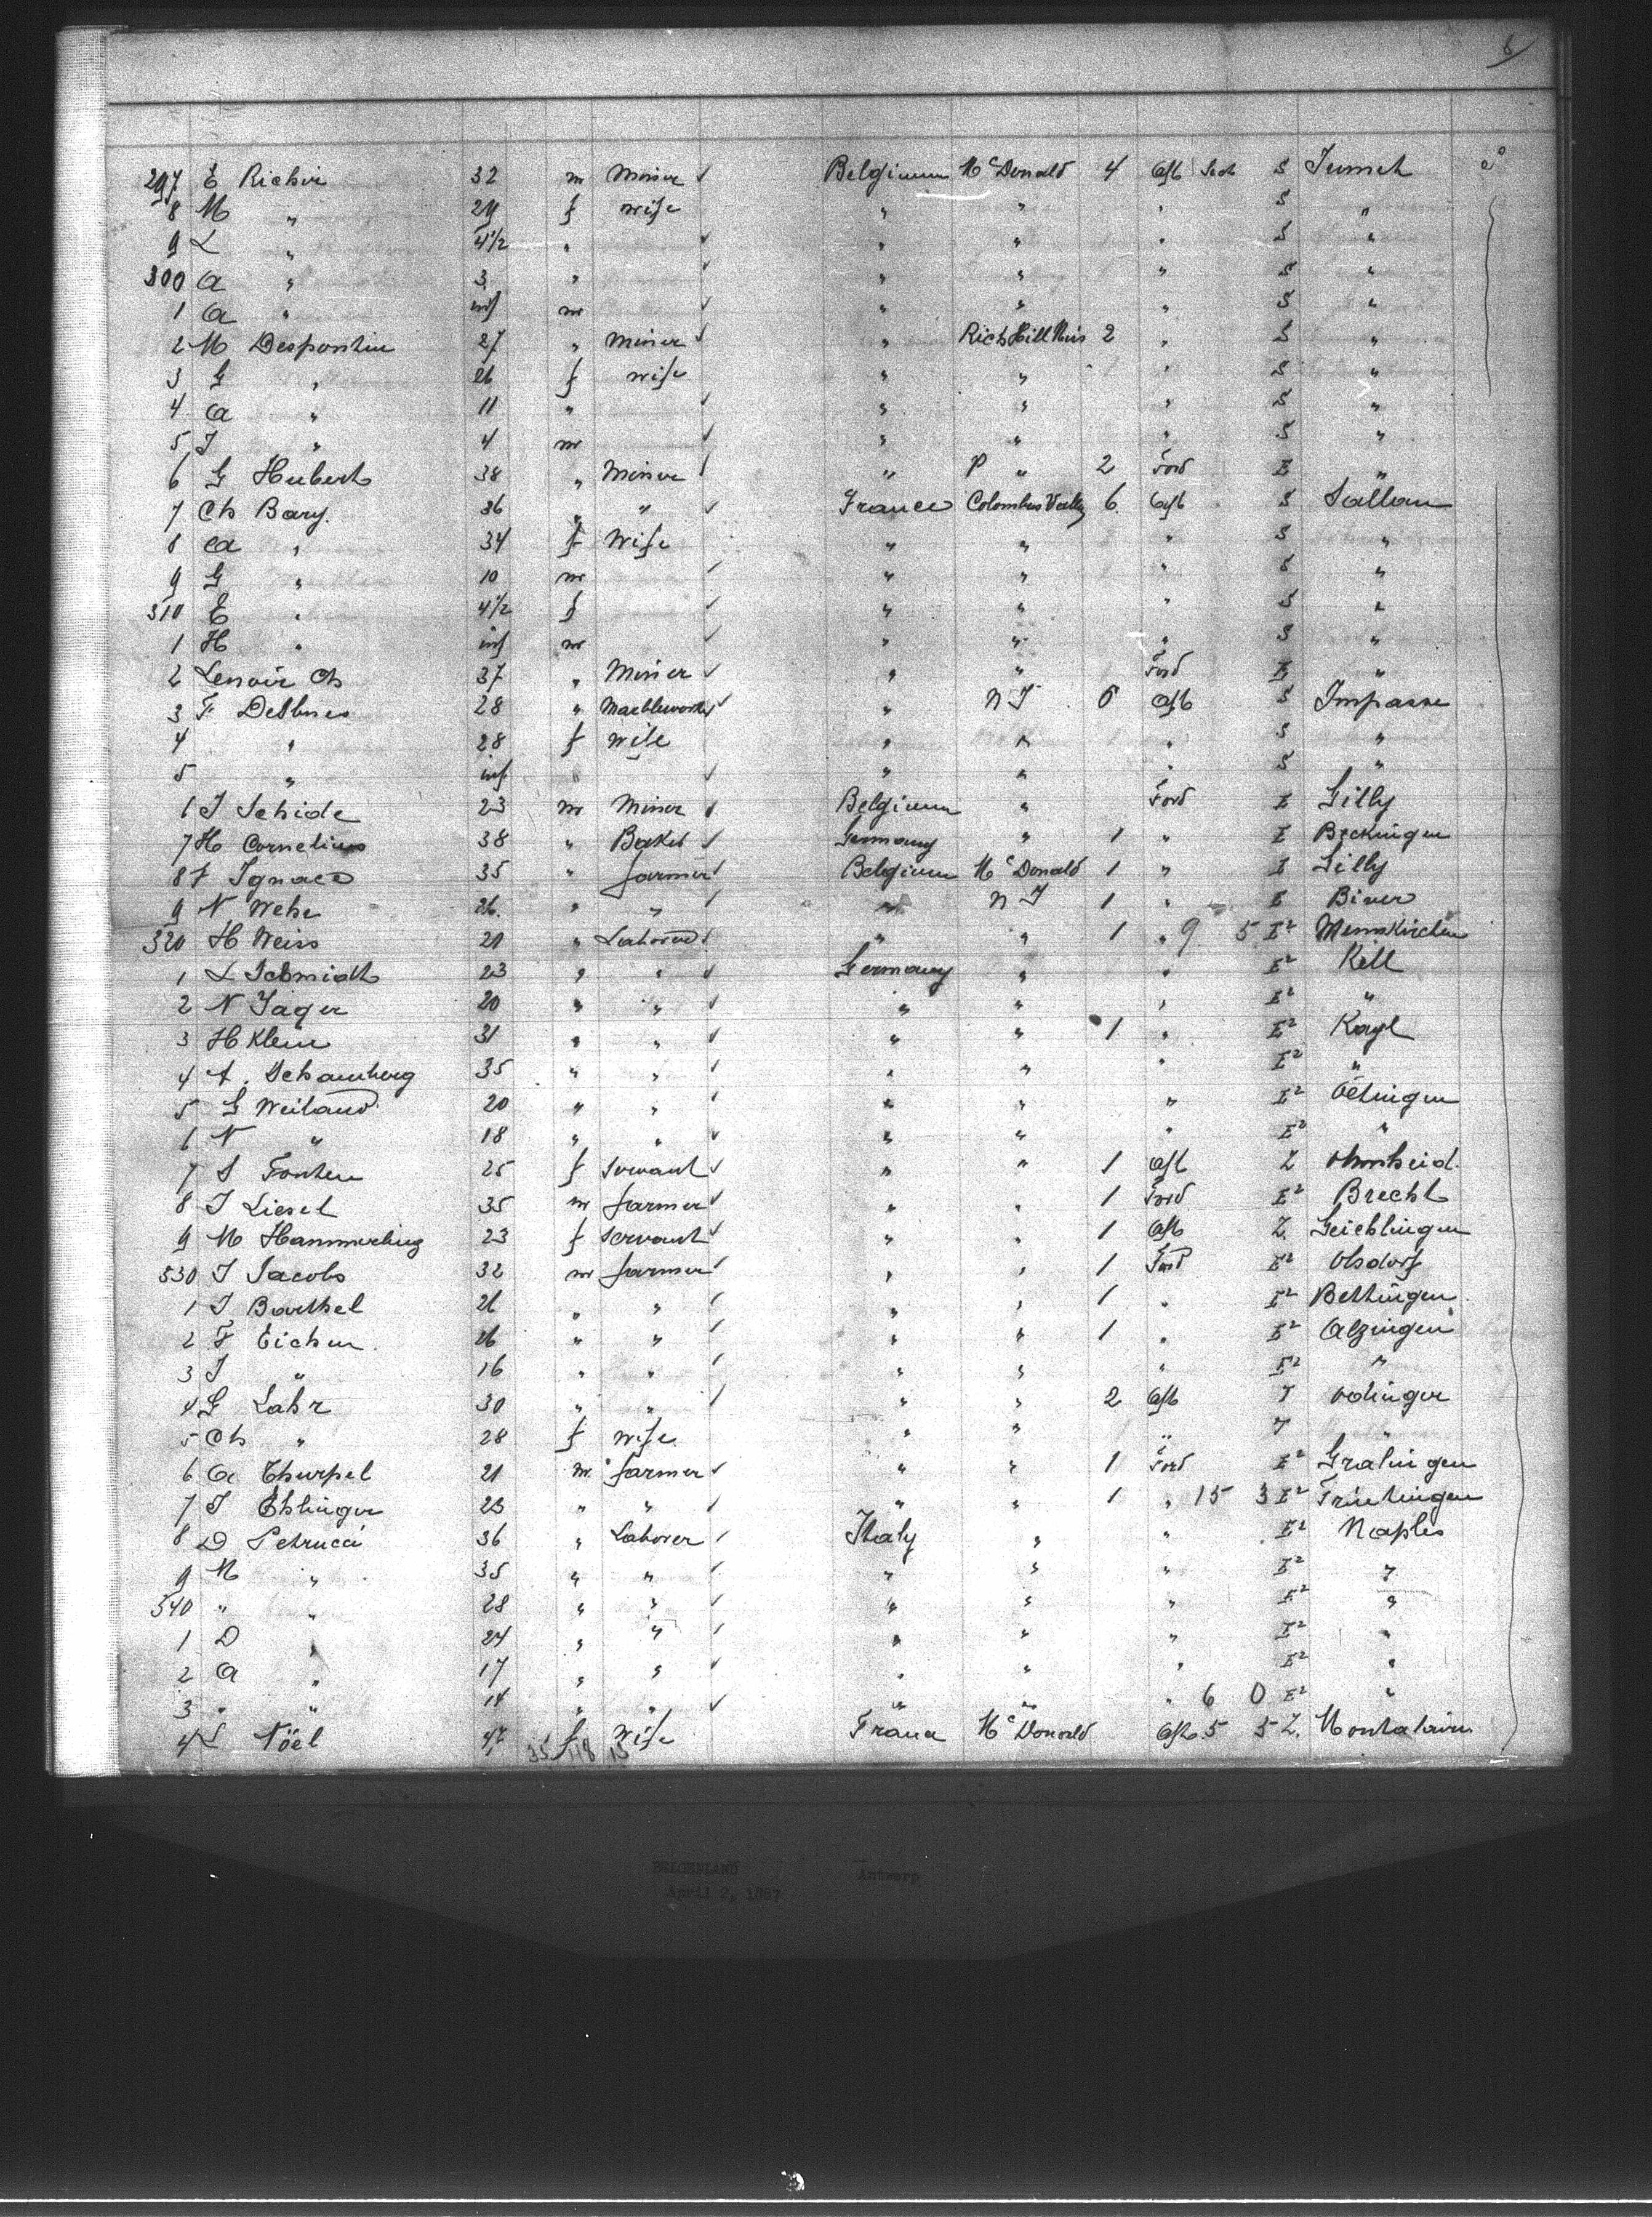 6
297 E Richir 32 m Miner ✓ Belgium McDonald 4 Aft Sech S Jumet
8 M " 29 f wife " " " S "
9 L " 4 1/2 " ✓ " " " S "
300 A " 3 " ✓ " " " S "
1 A " inf m ✓ " " " S "
2 M Despontin 27 " Miner ✓ " Rich Hill Mis 2 " S "
3 G " 26 f wife " " " S "
4 A " 11 " ✓ " " " S "
5 J " 4 m ✓ " " " S "
6 G Hubert 38 " Miner ✓ " P " 2 Ford E "
7 Ch Bary 36 " " ✓ France Colombus Vally 6 Aft S Sallau
8 A " 34 f Wife " " " S "
9 G " 10 m ✓ " " " S "
310 E " 4 1/2 f ✓ " " " S "
1 H " inf m ✓ " " " S "
2 Lenoir Ch 37 " Miner ✓ " " Ford E "
3 F 28 " ✓ " N J 6 Aft S Impasse
4 " 28 f wife " " " S "
5 " inf " ✓ " " " S "
6 J Schide 23 m Miner ✓ Belgium " Ford E Gilly
7 H Cornelius 38 " Baker ✓ Germany " 1 " E Beckingen
8 F Ignace 35 " farmer ✓ Belgium McDonald 1 " E Gilly
9 N Wehr 26 " " ✓ " N J 1 " E Biver
320 H Weiss 21 " Laborer ✓ " " 1 " 9 5 E² Memskirchen
1 L Schmidt 23 " " ✓ Germany " " E² Kell
2 N Jager 20 " " ✓ " " " E² "
3 H Klein 31 " " ✓ " " 1 " E² Kayl
4 A Schamberg 35 " " ✓ " " " E² "
5 G Weiland 20 " " ✓ " " " E² Oetingen
6 N " 18 " " ✓ " " " E² "
7 S Fonten 25 f Servant ✓ " " 1 Aft Z
8 J Liesel 35 m farmer ✓ " " 1 Ford E² Brecht
9 M Hammerling 23 f Servant ✓ " " 1 Aft Z Geichlingen
330 J Jacobs 32 m farmer ✓ " " 1 Ford E² Olsdorf
1 J Barthel 26 " " ✓ " " 1 " E² Bettingen
2 F Eichen 26 " " ✓ " " 1 " E² Alzingen
3 J " 16 " " ✓ " " " E² "
4 G Lahr 30 " " ✓ " " 2 Aft T Oedinger
5 Ch " 28 f wife " " " T "
6 A Thurpel 21 m farmer ✓ " " 1 Ford E² Gralingen
7 J Ehlinger 23 " " ✓ " " 1 " 15 3 E² Trintingen
8 D Petrucci 36 " Laborer ✓ Italy " " E² Naples
9 M " 35 " " ✓ " " " E² "
340 " " 28 " " ✓ " " " E² "
1 D " 24 " " ✓ " " " E² "
2 A " 17 " " ✓ " " " E² "
3 " " 14 " " ✓ " " " 6 0 E² "
4 L Nöel 47 f Wife France McDonald Aft 5 5 Z
35 48 15
BELGENLAND Antwerp
April 2, 1887
3